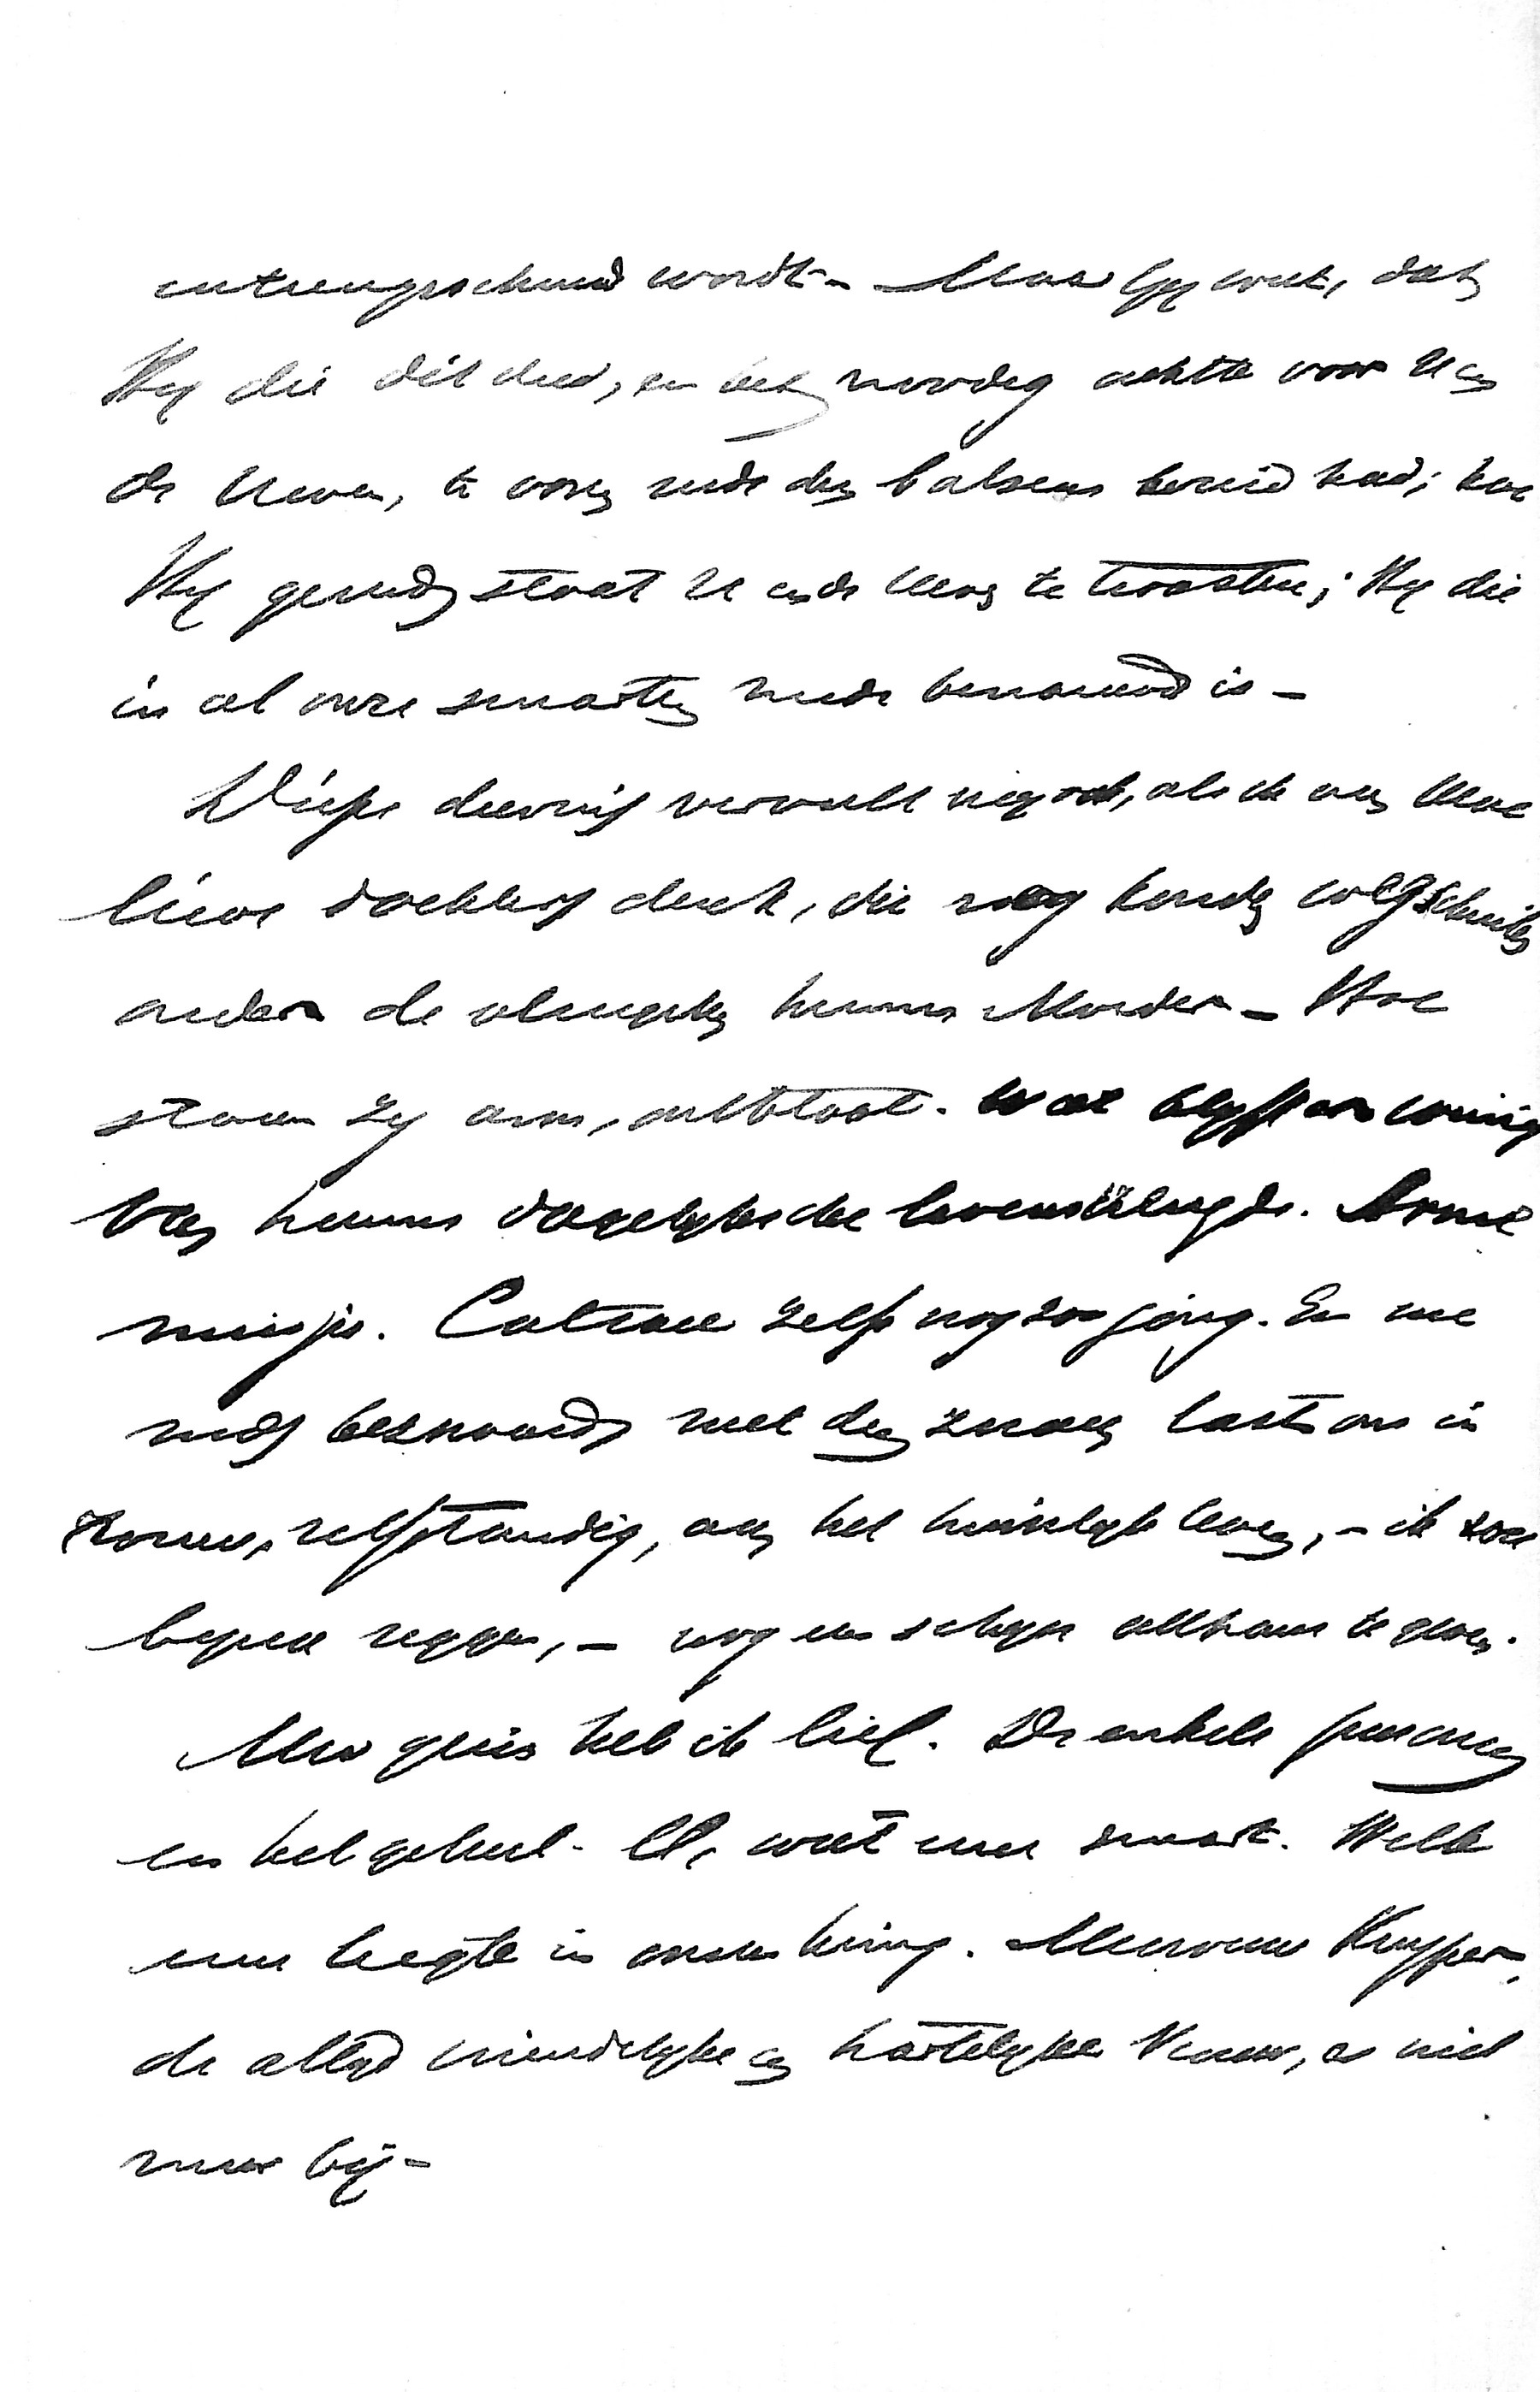 wordt - Maar Gij weet, dat
Hij die dit deed, en het noodig achtte voor U en
de Uwen, te voren reeds den balsem bereid had; hoe
Hij gereed staat U en de Uwen te troosten; Hij die
in al onze smarten mede benauwd is -
Diepe deernis vervult mij ook, als ik aan Uwe
lieve dochters denk, die nog konden wegschuilen
onder de vleugelen hunner Moeder - Hoe
staan zij arm, ontbloot. Wat blijft er weinig
van hunne dagelijksche levensvreugde. Arme
meisjes. Catrien zelf nog zoo jong. En nu
reeds bezwaard met den zwaren last om in
zelfstandig, aan het huiselijk leven, - ik zou
zeggen, - nog een schijn althans te geven.
Uw gezin heb ik lief. De enkele personen
en het geheel. O, wat een smart. Welk
een leegte in onzen kring. Mevrouw Kuyper,
de altijd vriendelijke en hartelijke Vrouw, is niet
meer bij -